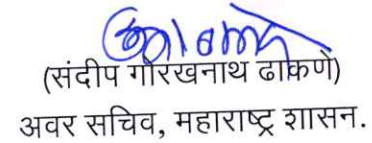 (संदीप गोरखनाथ ढाकणे)
अवर सचिव, महाराष्ट्र शासन.